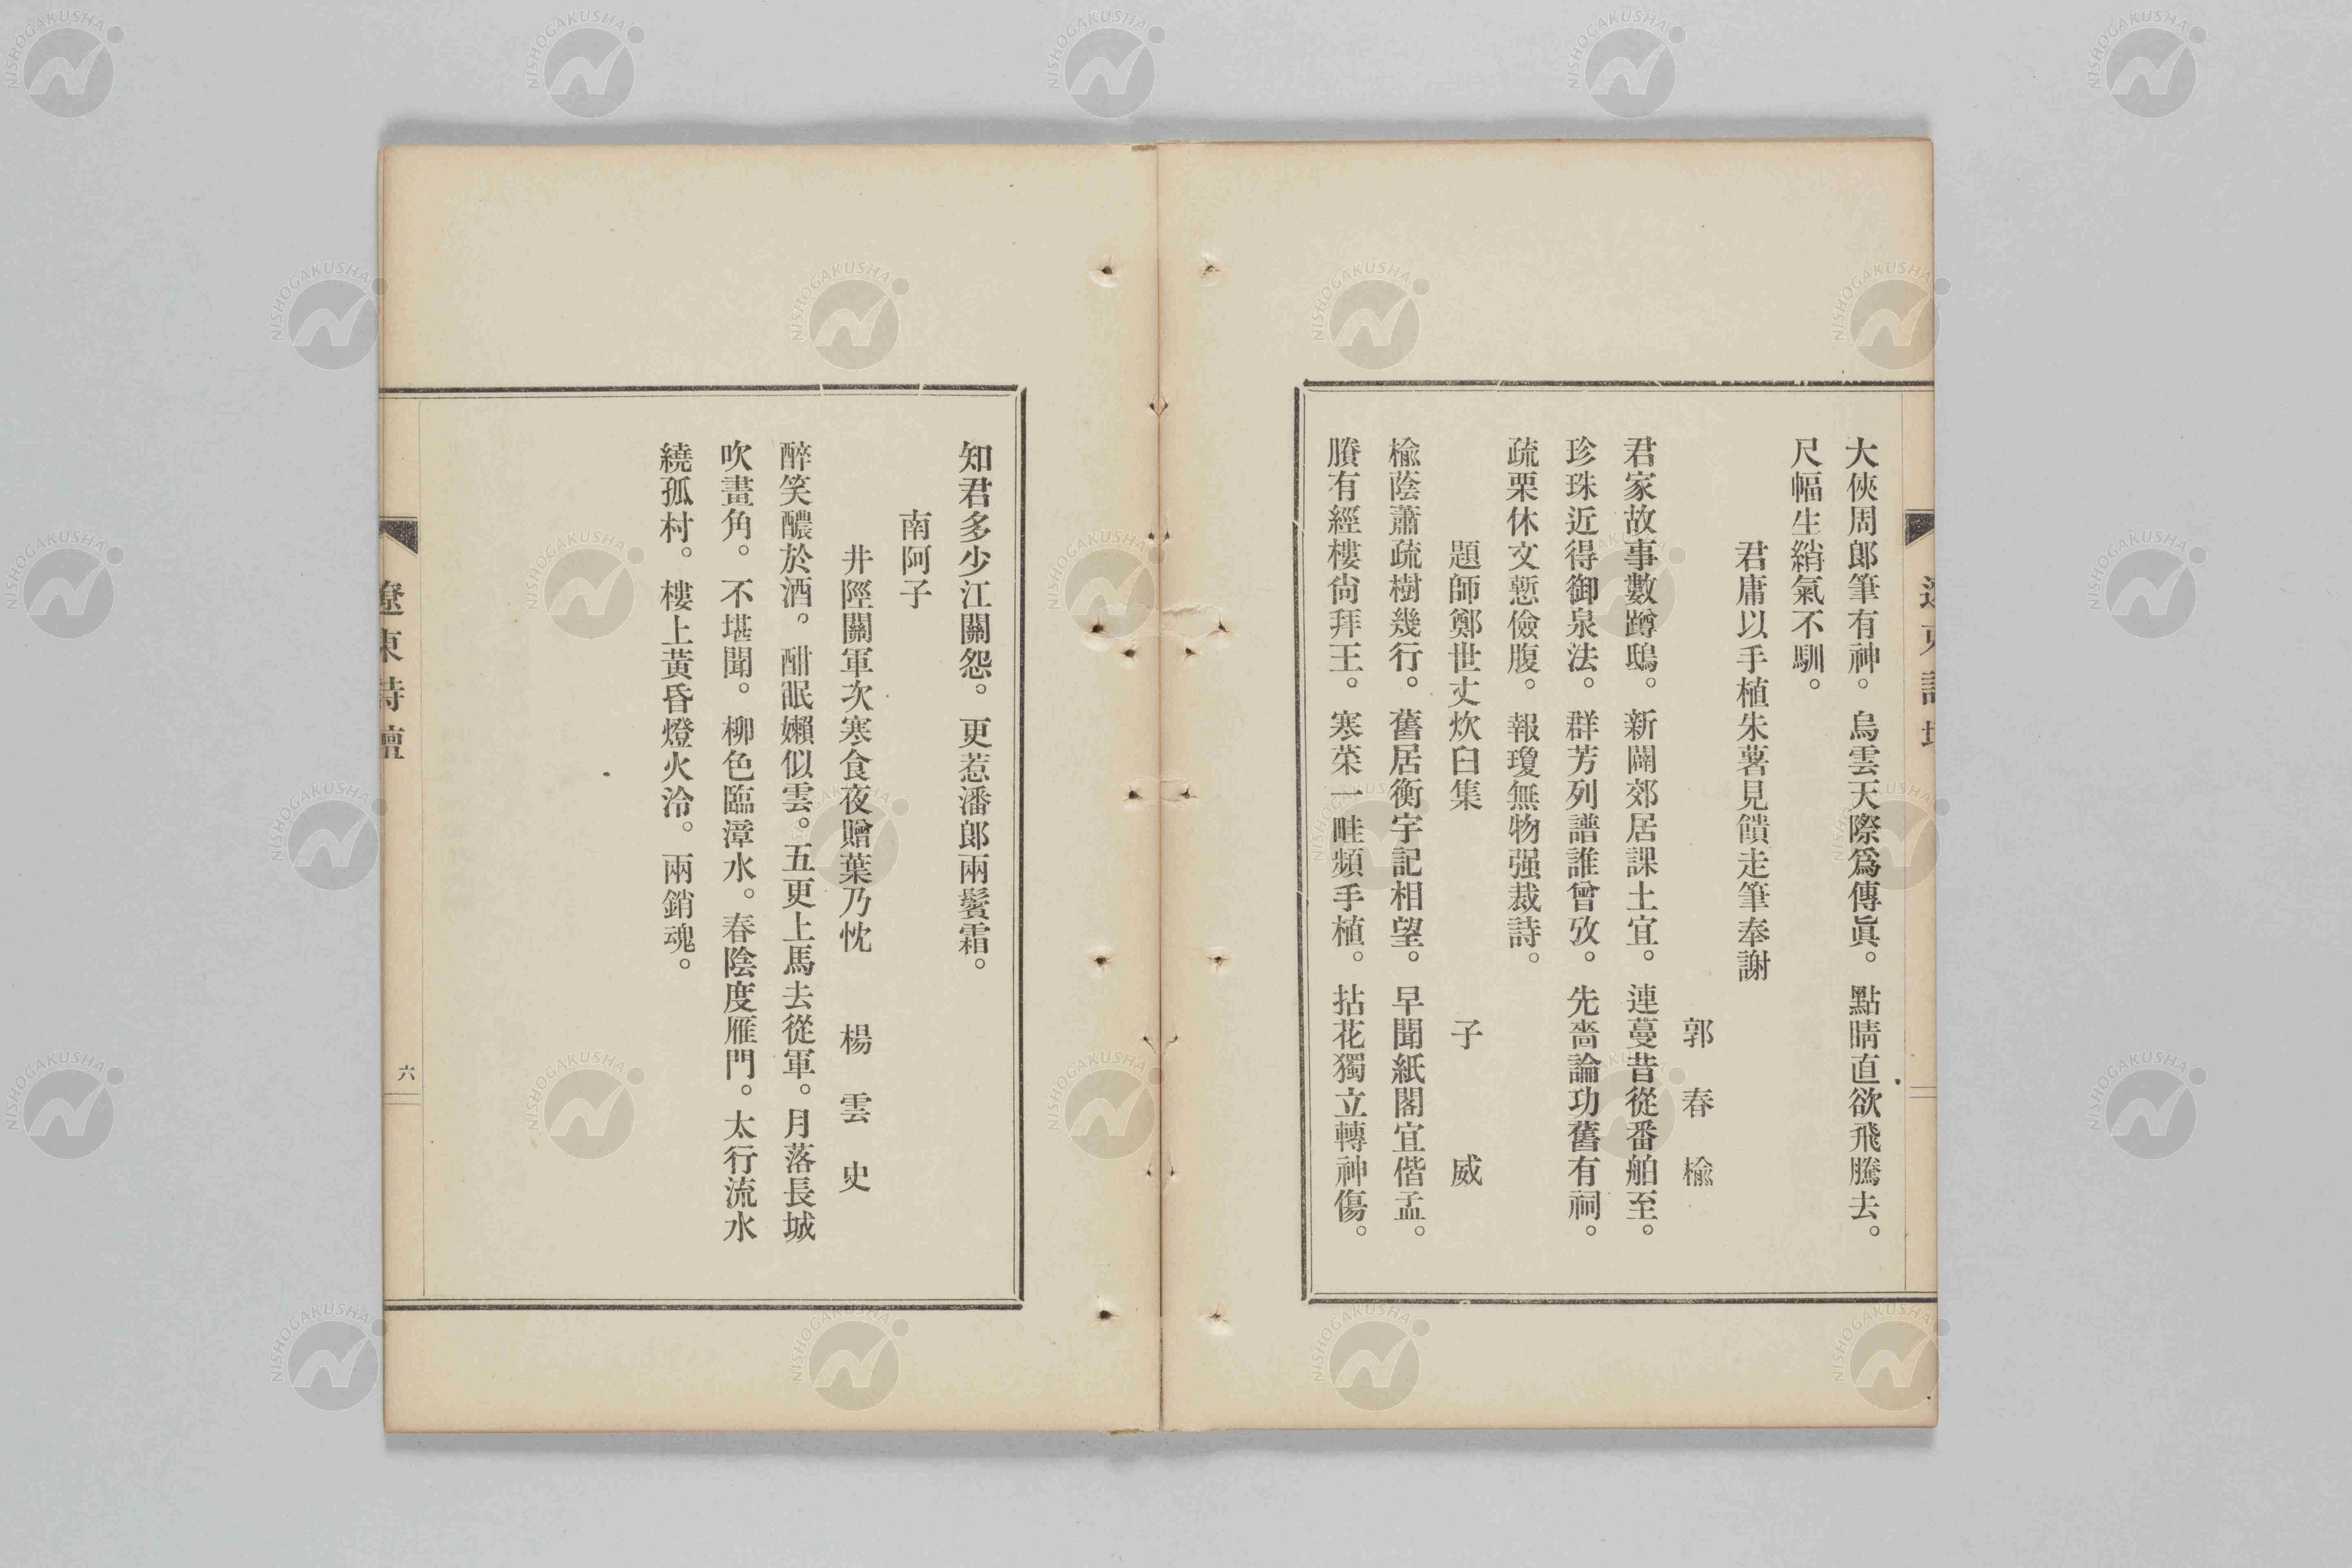 大俠周郎筆有神。烏雲天際爲傳眞。點睛直欲飛騰去。
尺幅生綃氣不馴。
君庸以手植朱薯見饋走筆奉謝
郭春楡
君家故事數蹲鴟。新闢郊居課土宜。連蔓昔從番舶至。
珍珠近得御泉法。群芳列譜誰曾攷。先嗇論功舊有祠。
疏栗休文慙儉腹。報瓊無物强裁詩。
題師鄭世丈炊臼集 子威
楡蔭蕭疏樹幾行。舊居衡宇記相望。早聞紙閣宜偕孟。
賸有經樓尙拜王。寒菜一畦頻手植。拈花獨立轉神傷。
知君多少江關怨。更惹潘郎兩鬢霜。
南阿子
井陘關軍次寒食夜贈葉乃忱 楊雲史
醉笑醲於酒。酣眠嬾似雲。五更上馬去從軍。月落長城
吹畫角。不堪聞。柳色臨漳水。春陰度雁門。太行流水
繞孤村。樓上黃昏燈火冷。兩銷魂。
遼東詩壇
六
NISHOGAKUSHA